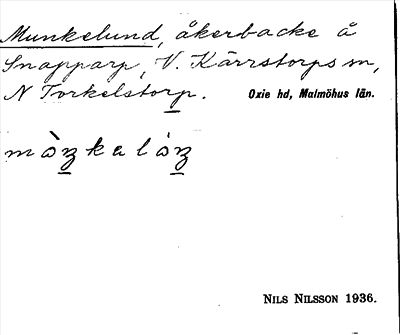 Munkelund, åkerbacke å
Snapparp, V. Kärrstorps sn,
N Torkelstorp. Oxie hd, Malmöhus län.
NILS NILSSON 1936.